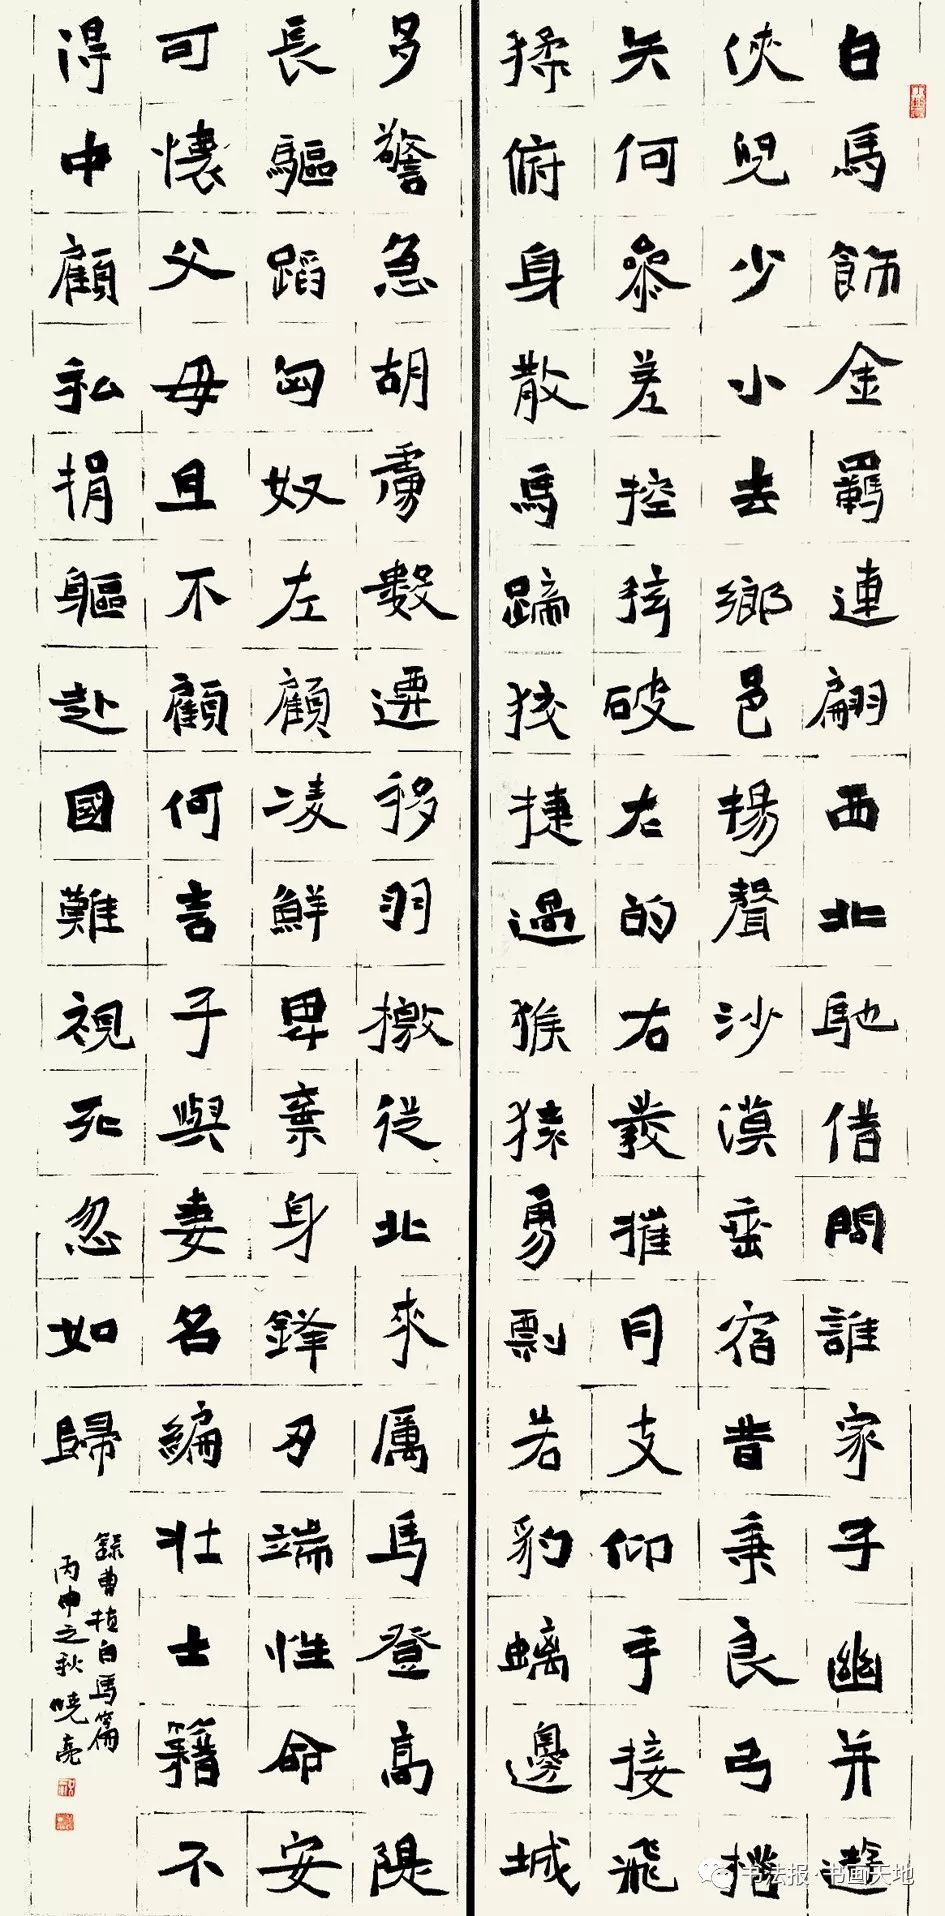 白馬飾金羈連翩西北馳借問誰家子幽并遊
俠兒少小去鄉邑揚聲沙漠垂宿昔秉良弓楛
矢何參差控弦破左的右發摧月支仰手接飛
猱俯身散馬蹄狡捷過猴猿勇剽若豹螭邊城
多警急胡虜數遷移羽檄從北來厲馬登高隄
長驅蹈匈奴左顧凌鮮卑棄身鋒刃端性命安
可懷父母且不顧何言子與妻名編壯士籍不
得中顧私捐軀赴國難視死忽如歸
錄曹植白馬篇
丙申之秋曉亮
书法报·书画天地